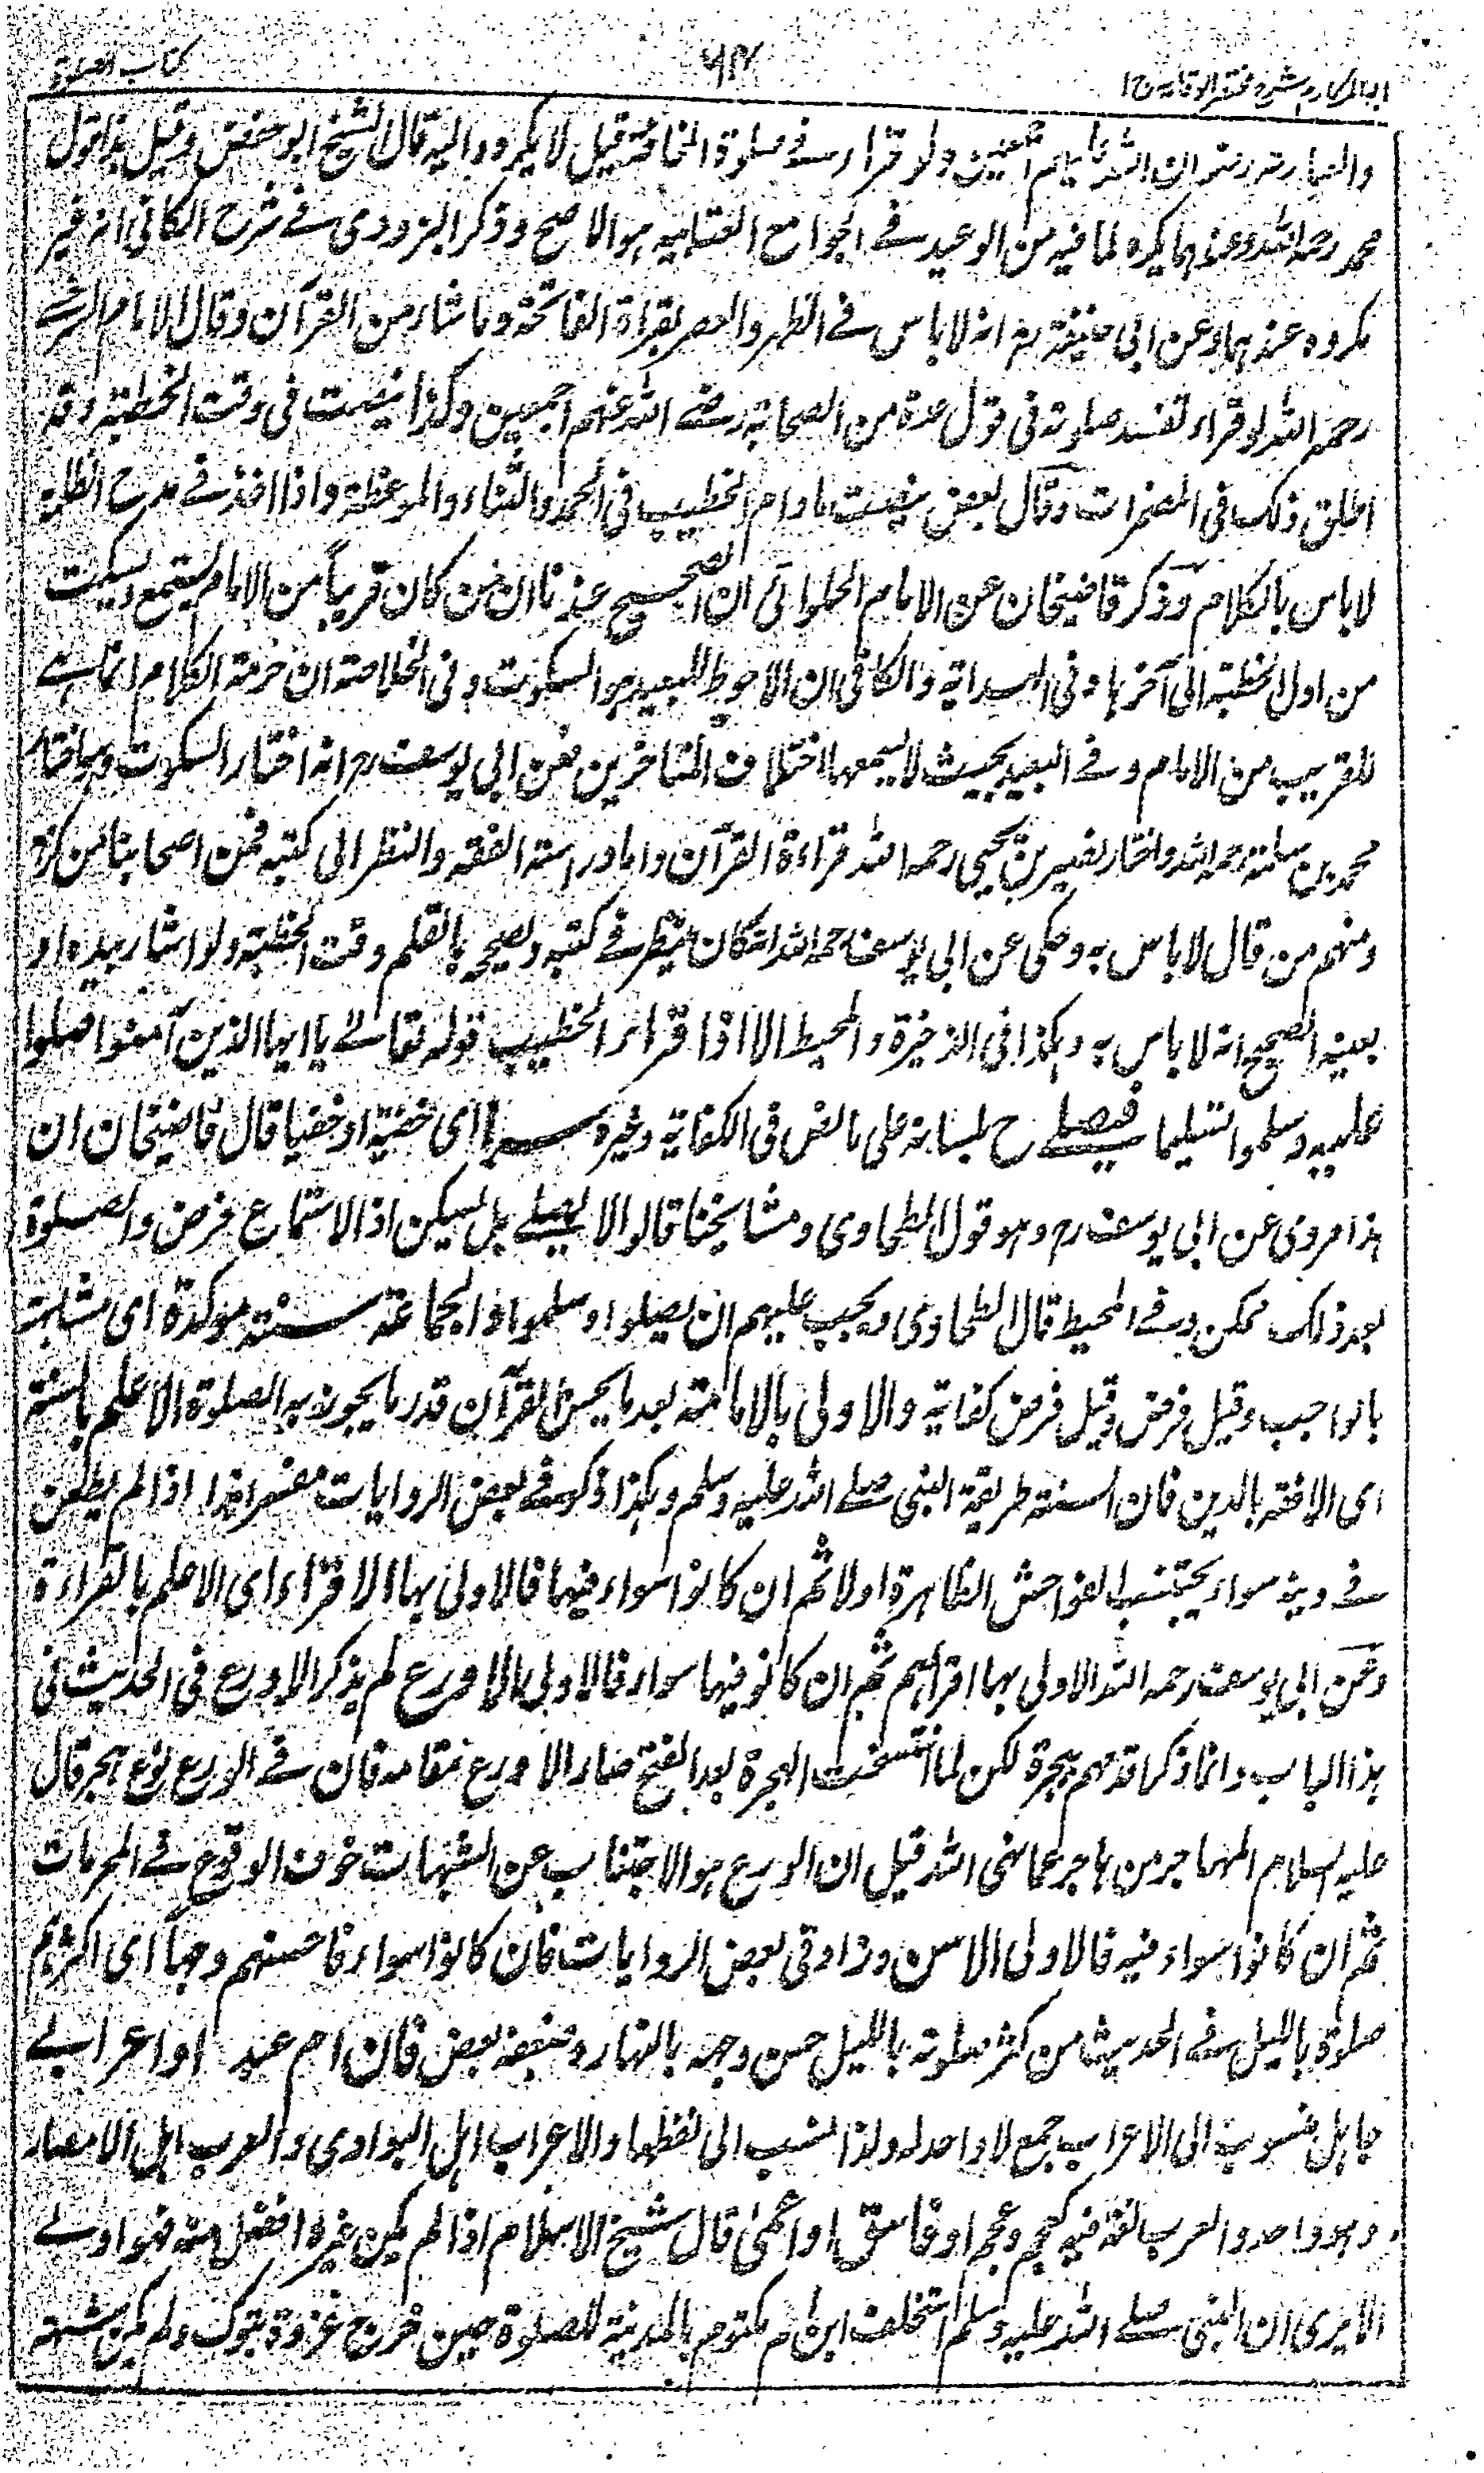 ابو المكارم شرح مختصر الوقايه ج١
كتاب الصلوة
والعبارة رضوان الله تعالى عليهم اجمعين ولو قرا في صلوة المخافتة قيل لا يكره واليه قال الشيخ ابو حفص وقيل هذا قول
محمد رحمه الله وعندهما يكره لما فيه من الوعيد في الجوامع العتابيه هو الاصح وذكر البزدوى في شرح الكافى انه غير
مكروه عندهما وعن ابى حنيفة رح انه لا باس في الظهر والعصر بقراة الفاتحة وما شاء من القرآن وقال الامام السرخسے
رحمه الله لو قراء تفسد صلوته فى قول عدة من الصحابة رضے الله عنهم اجمعين وكذا ينصت فى وقت الخطبة وقد
اطلق ذلك فى المضمرات وقال بعض ينصت مادام الخطيب فى الحمد والثناء والموعظة واذا اخذ في مدح الظلمة
لا باس بالكلام وذكر قاضيخان عن الامام الحلوائى ان الصحيح عندنا ان من كان قريباً من الامام يستمع ويسكت
من اول الخطبة الى آخرها وفى الهداية والكافى ان الاحوط للبعيد هو السكوت وفى الخلاصة ان حرمة الكلام انما هے
للقريب من الامام وفے البعيد بحيث لا يسمعها اختلاف المتاخرين فعن ابى يوسف رح انه اختار السكوت وهو اختيار
محمد بن سلمة رحمه الله واختار نصير بن يحيى رحمه الله قراءة القرآن واما دراسة الفقه والنظر الى كتبه فمن اصحابنا من كره
ومنهم من قال لا باس به وحكى عن ابى يوسف رحمه الله انه كان ينظر فے كتبه ويصححه بالقلم وقت الخطبة ولو اشار بيده او
بعينه الصحيح انه لا باس به وهكذا فى الذخيرة والمحيط الا اذا قراء الخطيب قوله تعالے يا ايها الذين آمنوا صلوا
عليه وسلموا تسليما فيصلے ح بلسانه على ما نص فى الكفاية وغيره سراً اى خفية او خفيا قال قاضيخان ان
هذا مروى عن ابى يوسف رح وهو قول الطحاوى ومشايخنا قالوا لا يصلے بل يسكن اذ الاستماع فرض والصلوة
بعد ذلك ممكن وفے المحيط قال الطحاوى ويجب عليهم ان يصلوا وسلموا والجماعة سنة موكدة اى مشابهة
بالواجب وقيل فرض وقيل فرض كفاية والاولى بالامامة بعد ما يحسن القرآن قدر ما يجوز به الصلوة الاعلم بالسنة
اى الافقه بالدين فان السنة طريقة النبى صلے الله عليه وسلم وهكذا ذكر فے بعض الروايات مفسرا هذا اذا لم يطعن
فے دينه سواء يجتنب الفواحش الظاهرة اولا ثم ان كانوا سواء فيها فالاولى بها الاقراء اى الاعلم بالقراءة
وعن ابى يوسف رحمه الله الاولى بها اقرأهم ثم ان كانوا فيها سواء فالاولى الاورع لم يذكر الاورع فى الحديث فى
هذا الباب وانما ذكر اقدمهم هجرة لكن لما انتسخت الهجرة بعد الفتح صار الاورع مقامه فان فے الورع نوع هجر قال
عليه السلام المهاجر من هاجر عما نهى الله قيل ان الورع هو الاجتناب عن الشبهات خوف الوقوع فے المحرمات
ثم ان كانوا سواء فيه فالاولى الاسن وزاد فى بعض الروايات فان كانوا سواء فاحسنهم وجهاً اى اكثرهم
صلوة بالليل فے الحديث من كثر صلوته بالليل حسن وجهه بالنهار وضعفه بعض فان ام عبد او اعرابے
جاهل منسوب الى الاعراب جمع لا واحد له ولذا نسب الى لفظها والاعراب اهل البوادى والعرب اهل الامصار
وهو واحد والعرب لغة فيه كعجم وعجم او فاسق او اعمى قال شيخ الاسلام اذا لم يكن غيره افضل منه فهو اولے
الا يرى ان النبى صلے الله عليه وسلم استخلف ابن ام مكتوم بالمدينة للصلوة حين خرج غزوة تبوك ولم يكن